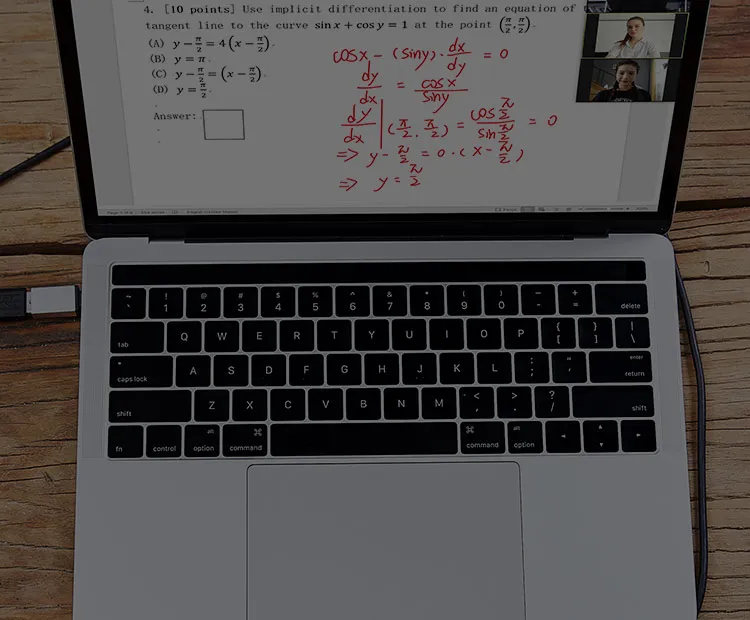 4. [10 points] Use implicit differentiation to find an equation of
tangent line to the curve sin x + cos y = 1 at the point (π/2, π/2).
(A) y − π/2 = 4(x − π/2).
(B) y = π.
(C) y − π/2 = (x − π/2).
(D) y = π/2.
Answer:
cosx − (siny) · dx/dy = 0
dy/dx = cosx/siny
dy/dx | (π/2, π/2) = cos π/2 / sin π/2 = 0
=> y − π/2 = 0 · (x − π/2)
=> y = π/2
~ ` ! 1 @ 2 # 3 $ 4 % 5 ^ 6 & 7 * 8 ( 9 ) 0 − - + = delete
tab Q W E R T Y U I O P { [ } ] | \
caps lock A S D F G H J K L : ; " ' enter return
shift Z X C V B N M < , > . ? / shift
fn control alt option ⌘ command ⌘ command alt option